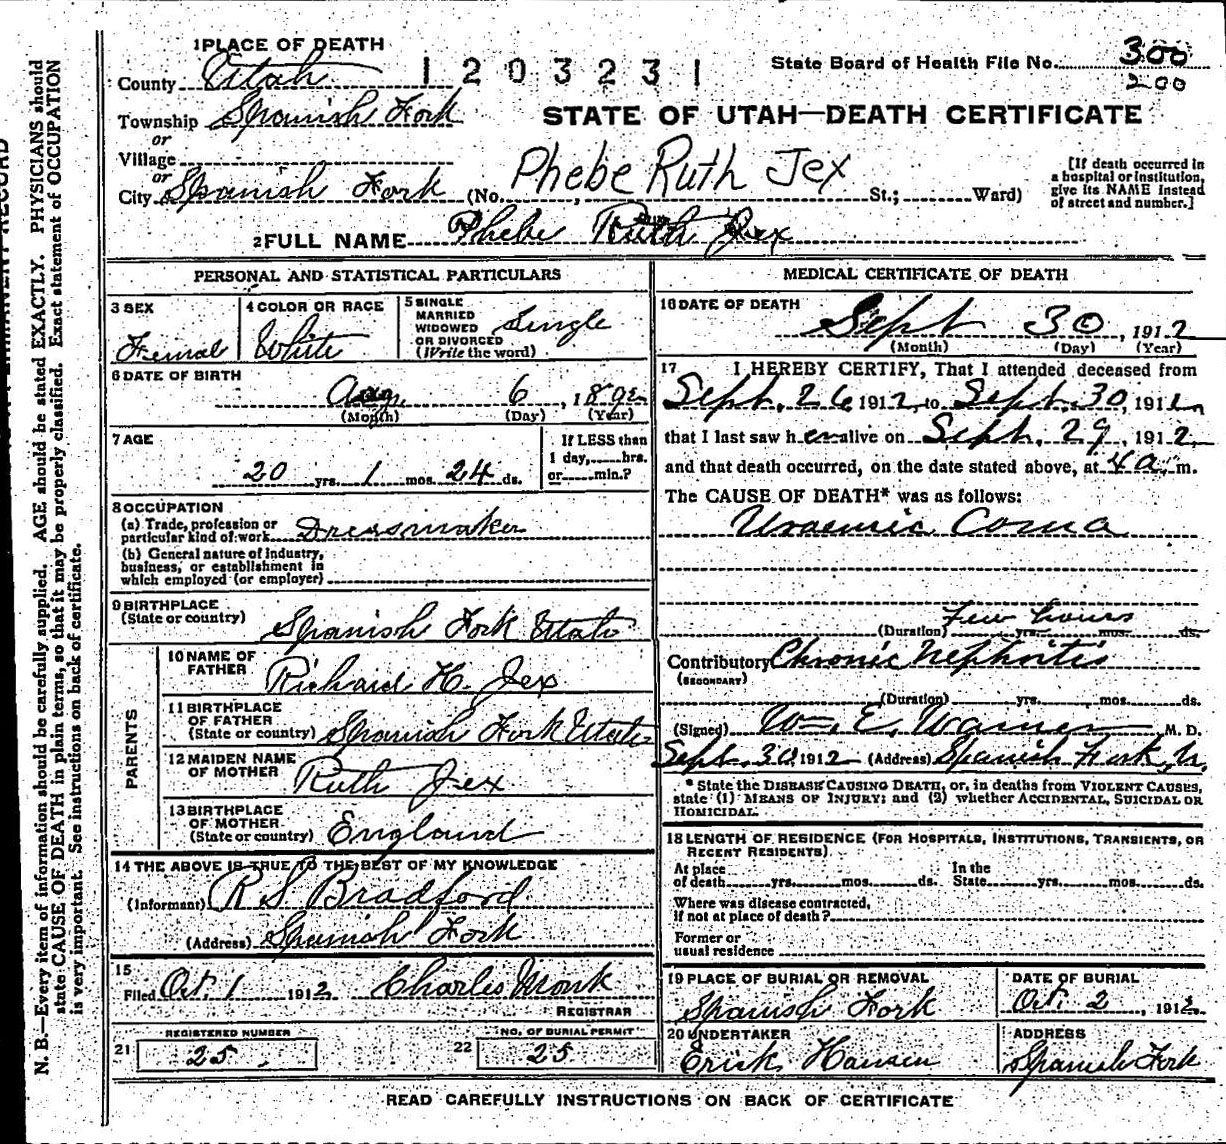 1 PLACE OF DEATH
County Utah
1203231
State Board of Health File No. 300
200
Township Spanish Fork
STATE OF UTAH—DEATH CERTIFICATE
or
Village
or
City Spanish Fork (No. , St.; Ward)
Phebe Ruth Jex
[If death occurred in a hospital or institution, give its NAME instead of street and number.]
2 FULL NAME Phebe Ruth Jex
PERSONAL AND STATISTICAL PARTICULARS
3 SEX
Female
4 COLOR OR RACE
White
5 SINGLE
MARRIED
WIDOWED
OR DIVORCED
(Write the word)
Single
6 DATE OF BIRTH
Aug. 6, 1892
(Month) (Day) (Year)
7 AGE
20 yrs. 1 mos. 24 ds.
If LESS than
1 day, hrs.
or min.?
8 OCCUPATION
(a) Trade, profession or
particular kind of work Dressmaker
(b) General nature of industry,
business, or establishment in
which employed (or employer)
9 BIRTHPLACE
(State or country) Spanish Fork Utah
PARENTS
10 NAME OF
FATHER Richard H. Jex
11 BIRTHPLACE
OF FATHER
(State or country) Spanish Fork Utah
12 MAIDEN NAME
OF MOTHER Ruth Jex
13 BIRTHPLACE
OF MOTHER
(State or country) England
14 THE ABOVE IS TRUE TO THE BEST OF MY KNOWLEDGE
(Informant) R S Bradford
(Address) Spanish Fork
15
Filed Oct. 1 1912 Charles Monk
REGISTRAR
REGISTERED NUMBER
21 25
NO. OF BURIAL PERMIT
22 25
MEDICAL CERTIFICATE OF DEATH
16 DATE OF DEATH
Sept 30, 1912
(Month) (Day) (Year)
17 I HEREBY CERTIFY, That I attended deceased from
Sept. 26 1912, to Sept. 30, 1912,
that I last saw her alive on Sept. 29, 1912,
and that death occurred, on the date stated above, at 4 a. m.
The CAUSE OF DEATH* was as follows:
Uraemic Coma
Few hours
(Duration) yrs. mos. ds.
Contributory Chronic Nephritis
(SECONDARY)
(Duration) yrs. mos. ds.
(Signed) Wm. E. Warner M. D.
Sept. 30 1912 (Address) Spanish Fork, U.
* State the DISEASE CAUSING DEATH, or, in deaths from VIOLENT CAUSES,
state (1) MEANS OF INJURY; and (2) whether ACCIDENTAL, SUICIDAL OR
HOMICIDAL.
18 LENGTH OF RESIDENCE (FOR HOSPITALS, INSTITUTIONS, TRANSIENTS, OR
RECENT RESIDENTS)
At place
of death yrs. mos. ds.
In the
State yrs. mos. ds.
Where was disease contracted,
if not at place of death?
Former or
usual residence
19 PLACE OF BURIAL OR REMOVAL
Spanish Fork
DATE OF BURIAL
Oct. 2, 1912
20 UNDERTAKER
Erick Hansen
ADDRESS
Spanish Fork
READ CAREFULLY INSTRUCTIONS ON BACK OF CERTIFICATE
N. B.—Every item of information should be carefully supplied. AGE should be stated EXACTLY. PHYSICIANS should
state CAUSE OF DEATH in plain terms, so that it may be properly classified. Exact statement of OCCUPATION
is very important. See instructions on back of certificate.
PERMANENT RECORD